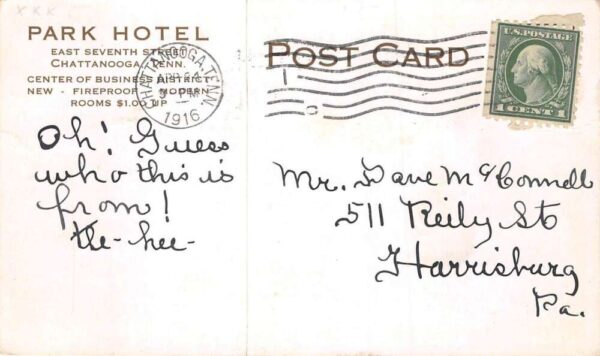 XXX
PARK HOTEL
EAST SEVENTH STREET
CHATTANOOGA, TENN.
CENTER OF BUSINESS DISTRICT
NEW - FIREPROOF - MODERN
ROOMS $1.00 UP
CHATTANOOGA, TENN.
APR
PM
1916
POST CARD
U.S. POSTAGE
1 CENT 1
Oh! Guess
who this is
from!
the-hee-
Mr. Dave McConnell
511 Reily St
Harrisburg
Pa.